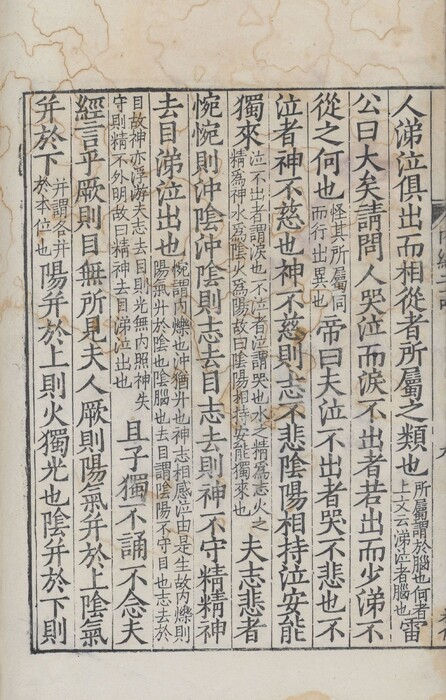 人涕泣俱出而相從者所屬之類也所屬謂於腦也何者上文云涕泣者腦也雷
公曰大矣請問人哭泣而淚不出者若出而少涕不
從之何也怪其所屬同而行出異也帝曰夫泣不出者哭不悲也不
泣者神不慈也神不慈則志不悲陰陽相持泣安能
獨來泣不出者謂淚也不泣者泣謂哭也水之精爲志火之精爲神水爲陰火爲陽故曰陰陽相持安能獨來也夫志悲者
惋惋則沖陰沖陰則志去目志去則神不守精精神
去目涕泣出也惋謂内爍也沖猶升也神志相感泣由是生故内爍則陽氣升於陰也陰腦也去目謂陰陽不守目也志去於
目故神亦浮游夫志去目則光無内照神失守則精不外明故曰精神去目涕泣出也且子獨不誦不念夫
經言乎厥則目無所見夫人厥則陽氣并於上陰氣
并於下并謂各并於本位也陽并於上則火獨光也陰并於下則